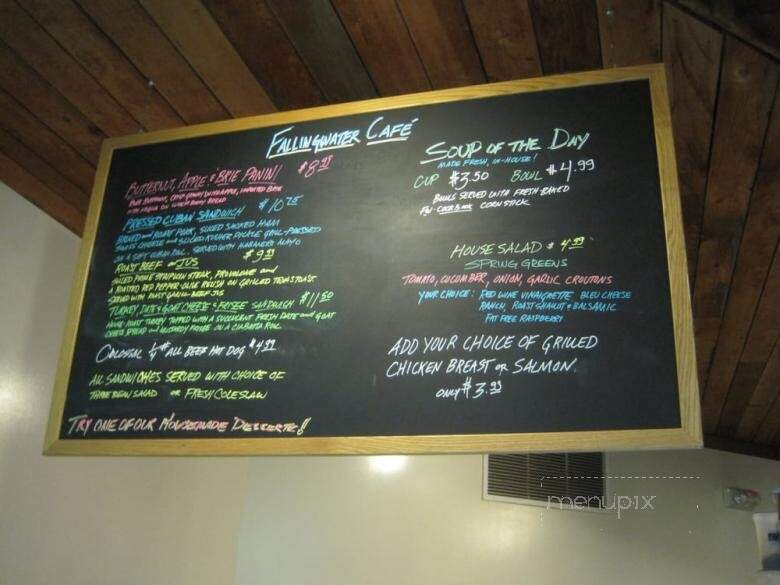 FALLINGWATER CAFÉ
BUTTERNUT, APPLE & BRIE PANINI $8.95
WITH ON HONEY BREAD
PRESSED CUBAN SANDWICH $10.25
BRINED AND ROAST PORK, SLICED SMOKED HAM
SWISS CHEESE AND SLICED KOSHER PICKLE GRILL-PRESSED
ON A SOFT CUBAN ROLL. SERVED WITH HABANERO MAYO
ROAST BEEF AU JUS $9.95
SLICED PRIME STEAK, PROVOLONE AND
A ROASTED RED PEPPER OLIVE RELISH ON GRILLED TEXAS TOAST
SERVED WITH ROAST GARLIC-BEEF JUS
TURKEY, DATE & GOAT CHEESE & FRISEE SANDWICH $11.50
HOUSE ROAST TURKEY TOPPED WITH A SUCCULENT FRESH DATE AND GOAT
CHEESE SPREAD AND MUSTARDY FRISEE ON A CIABATTA ROLL
COLOSSAL 1/4# ALL BEEF HOT DOG $4.99
ALL SANDWICHES SERVED WITH CHOICE OF
THREE BEAN SALAD OR FRESH COLESLAW
TRY ONE OF OUR HOUSEMADE DESSERTS!
SOUP OF THE DAY
MADE FRESH, IN-HOUSE!
CUP $3.50 BOWL $4.99
BOWLS SERVED WITH FRESH-BAKED
CORN STICK
HOUSE SALAD $4.99
SPRING GREENS
TOMATO, CUCUMBER, ONION, GARLIC CROUTONS
YOUR CHOICE: RED WINE VINAIGRETTE BLEU CHEESE
RANCH, ROAST SHALLOT & BALSAMIC
FAT FREE RASPBERRY
ADD YOUR CHOICE OF GRILLED
CHICKEN BREAST OR SALMON.
ONLY $3.99
menupix